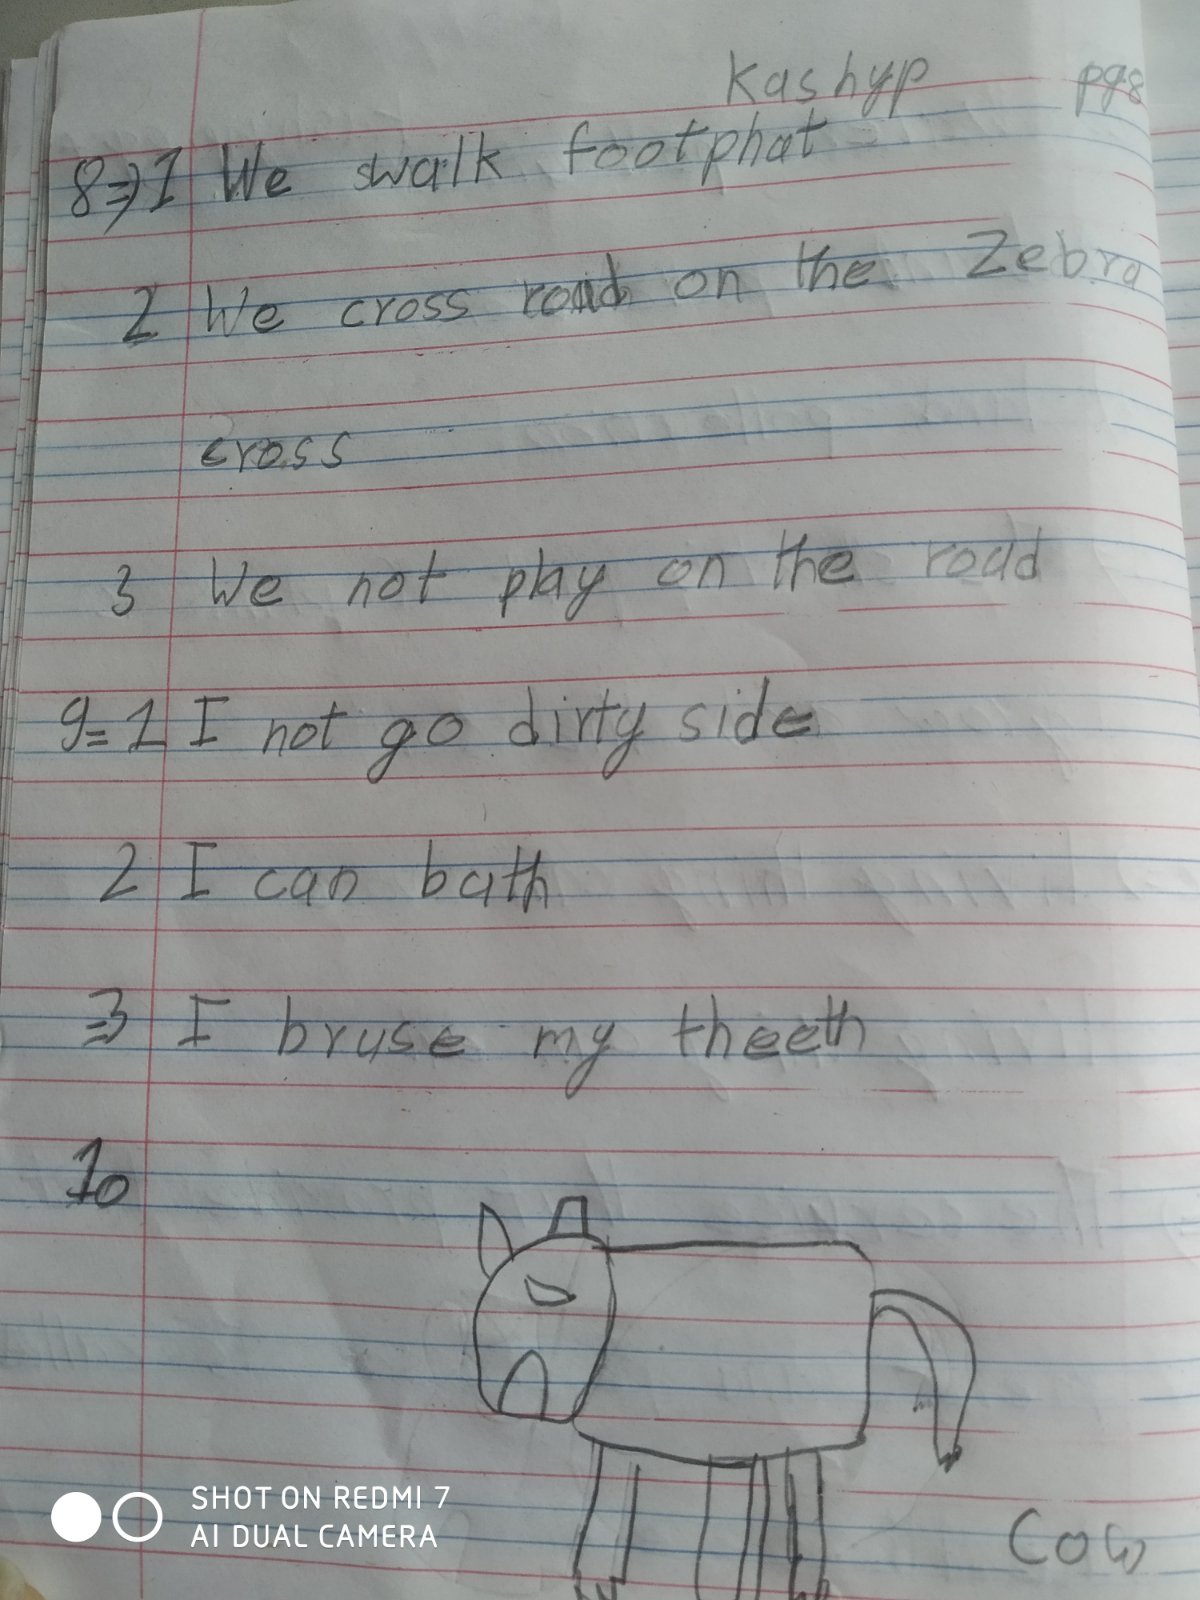 Kashyp pg8
8⇒1 We swalk footphat
2 We cross road on the Zebra
cross
3 We not play on the road
9=1 I not go dirty side
2 I can bath
⇒3 I bruse my theeth
10
Cow
SHOT ON REDMI 7
AI DUAL CAMERA